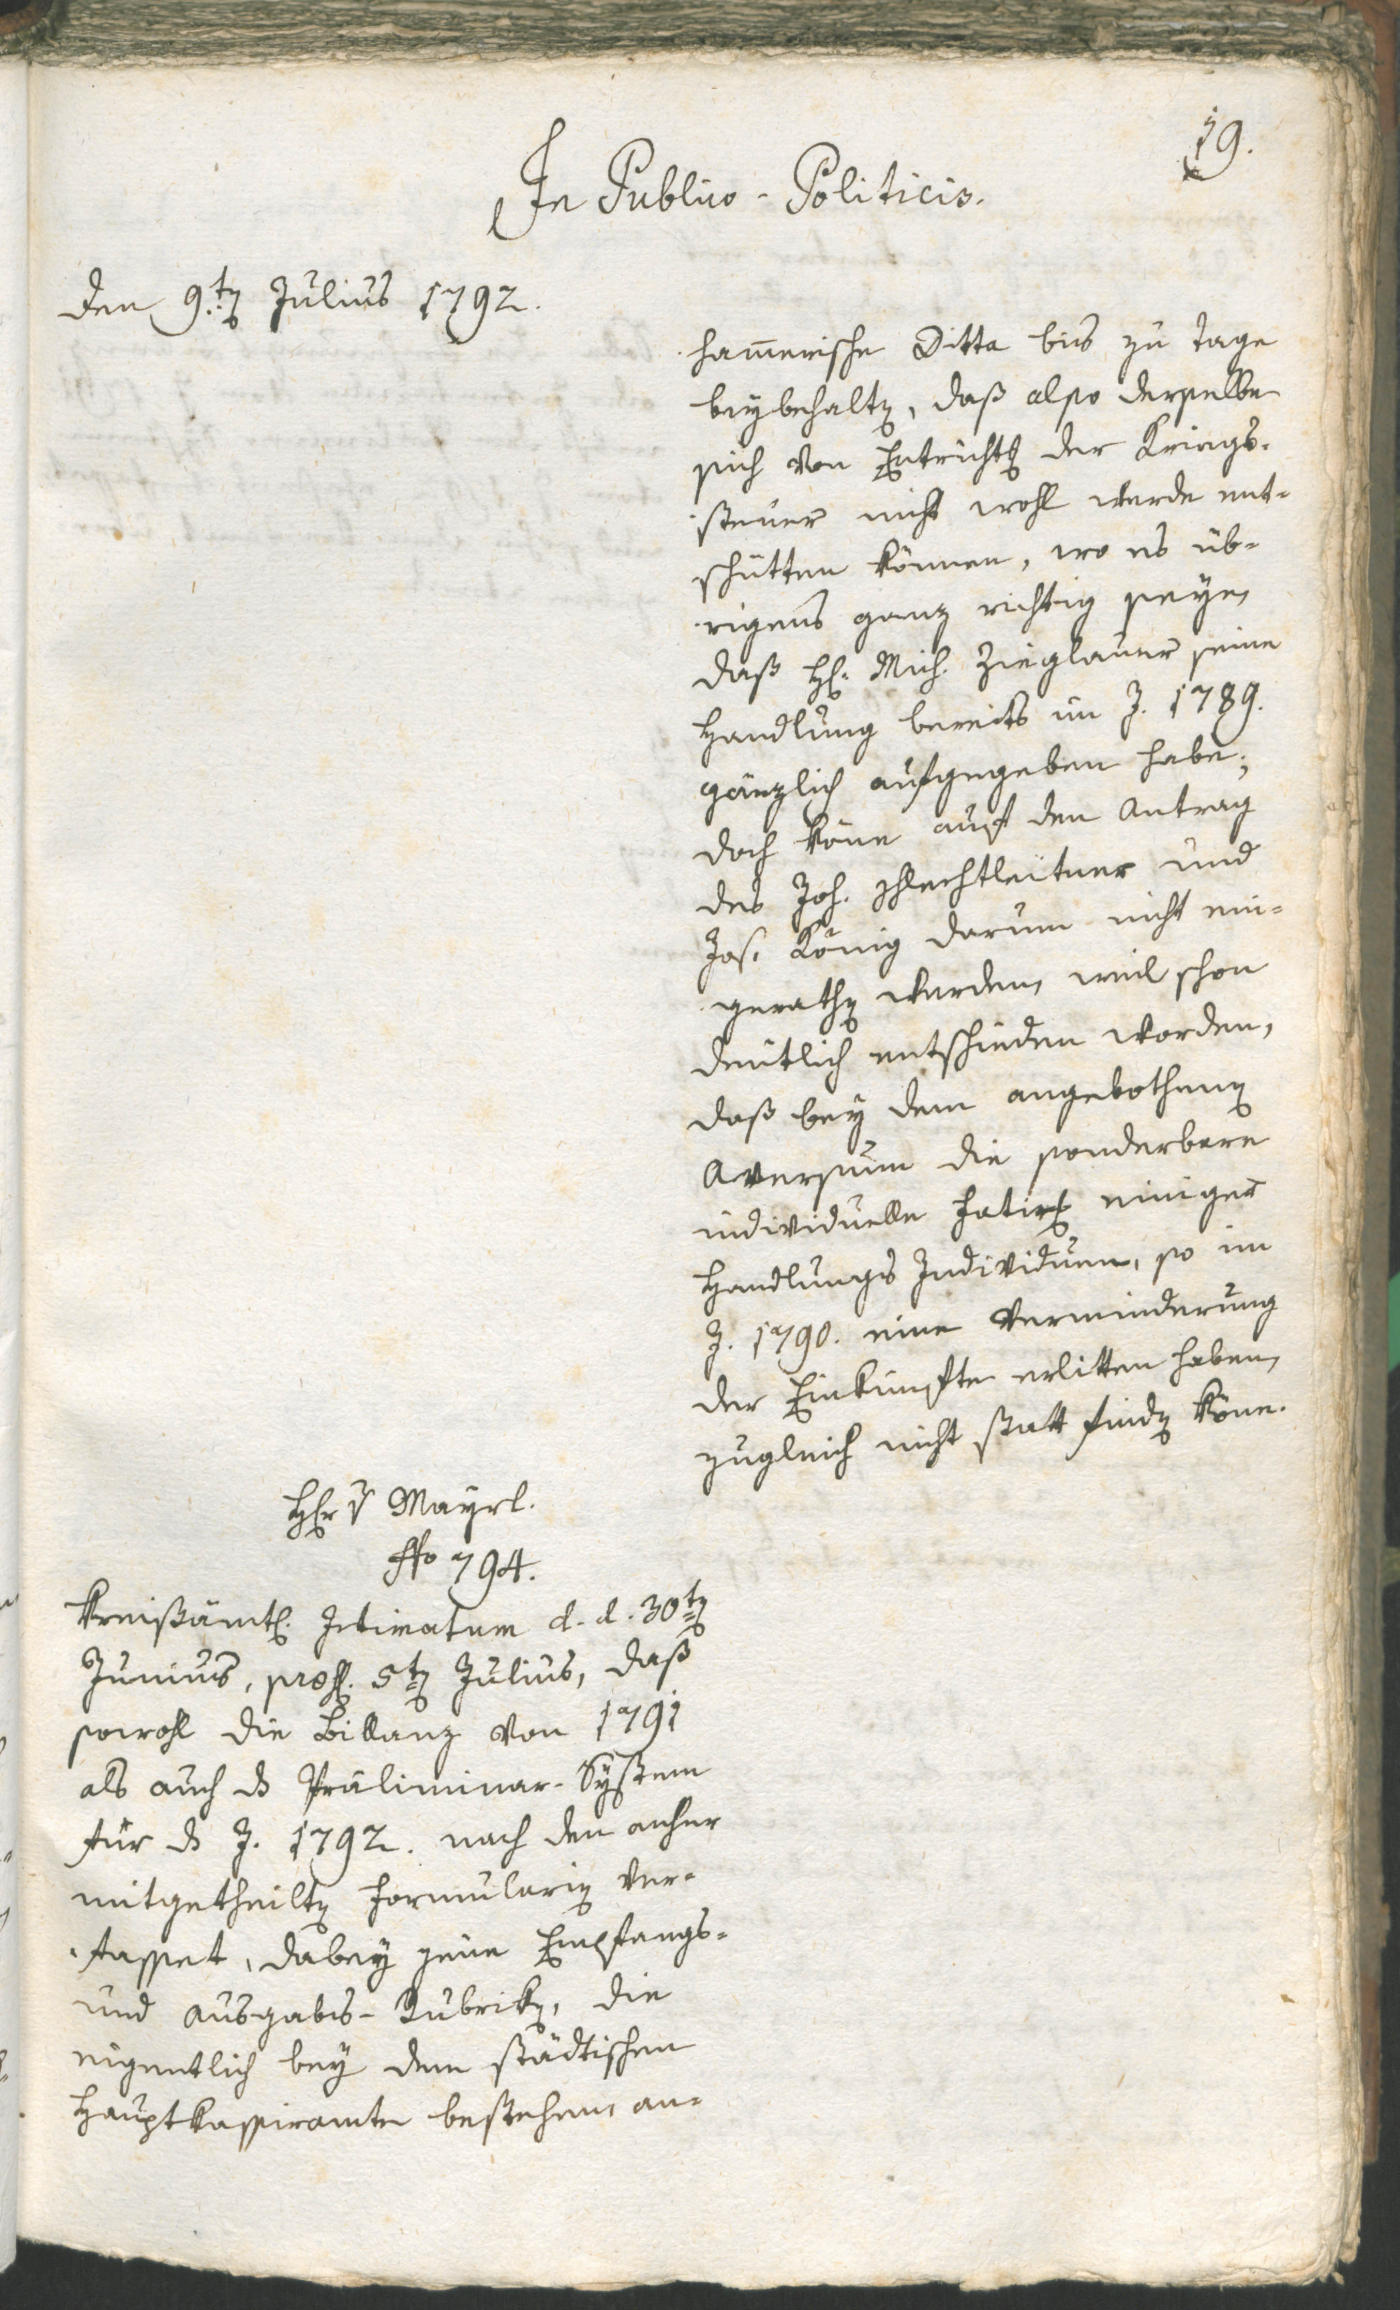 19.
In Publico-Politicis.
Den 9.ten Julius 1792.
hamerische Ditta bis zu Tage
beybehalten, daß also derselbe
sich von Entrichtg der Kriegs-
steuer nicht wohl werde ent-
schütten können, wo es üb-
rigens ganz richtig seye,
daß H. Mich. Zieglauer seine
Handlung bereits im J. 1789.
gänzlich aufgegeben habe;
doch köne auf den Antrag
des Joh. Schlechtleitner und
Jos. König darum nicht ein-
gerathen werden, weil schon
deutlich entschieden worden,
daß bey dem angebothenen
Aversum die sonderbare
individuelle Fatirg einiger
Handlungs Individuen, so im
J. 1790. eine Verminderung
der Einkünfte erlitten haben,
zugleich nicht statt finden köne.
Mayrl.
794.
Kreißämtl. Intimatum d. d. 30ten
Junius, 5ten Julius, daß
sowohl die Billanz von 1791
als auch ds Präliminar-System
für ds J. 1792. nach den anher
mitgetheilten Formularien ver-
fasset, dabey jene Empfangs-
und Ausgabs-Rubriken, die
eigentlich bey dem städtischen
Hauptkassieramte bestehen, an-